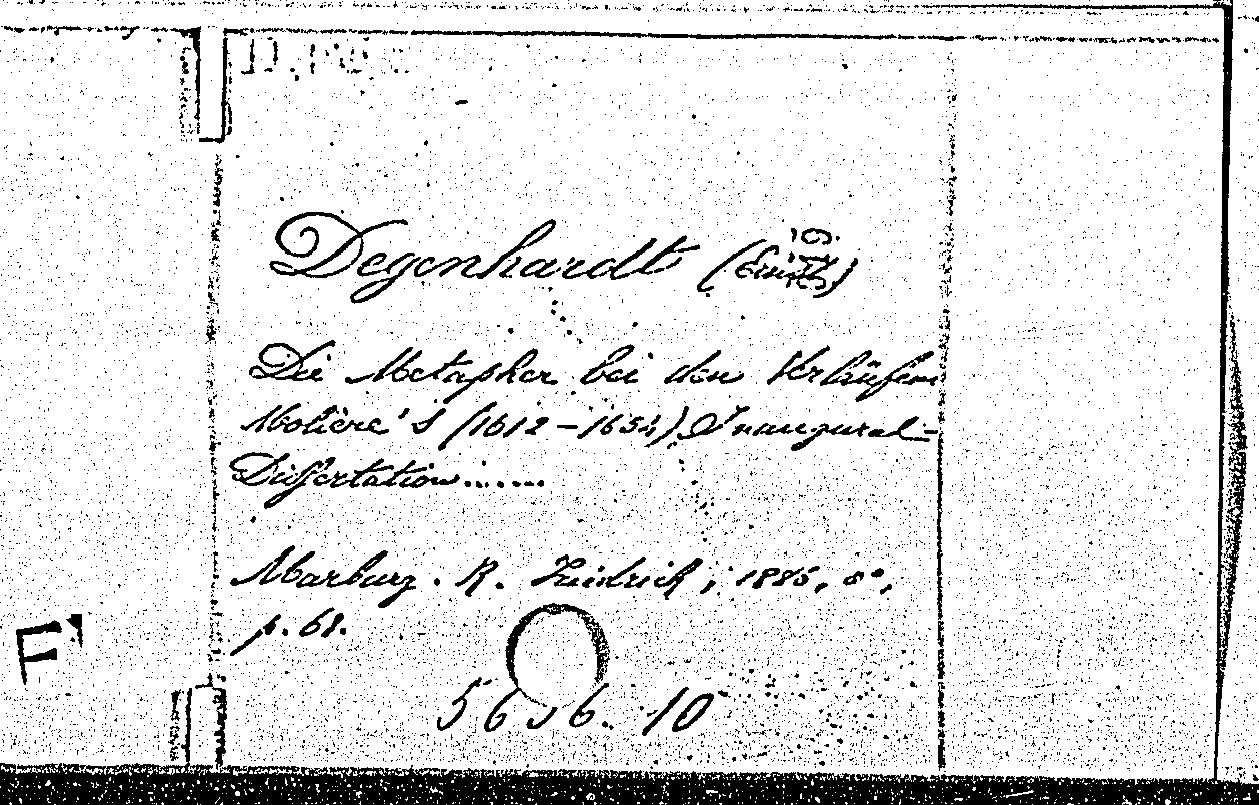 Degenhardt (Ernst)
Die Metapher bei den Vorläufern
Molière's (1612-1654) Inaugural-
Dissertation......
Marburg. R. Friedrich; 1885, 8°,
p. 68.
5656. 10
F